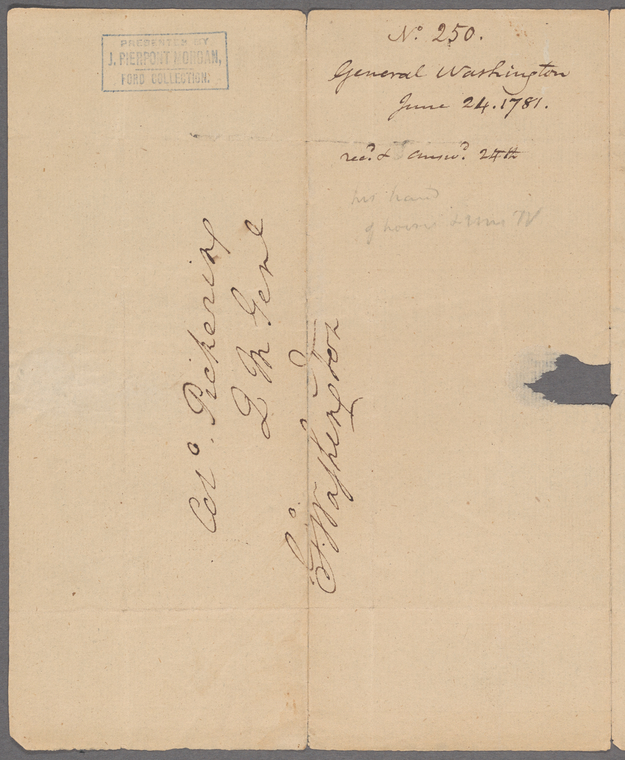 PRESENTED BY
J. PIERPONT MORGAN,
FORD COLLECTION.
No. 250.
General Washington
June 24. 1781.
rec.d & answ.d 24th
his hand
Colo. Pickering
Q M Genl
Go. Washington